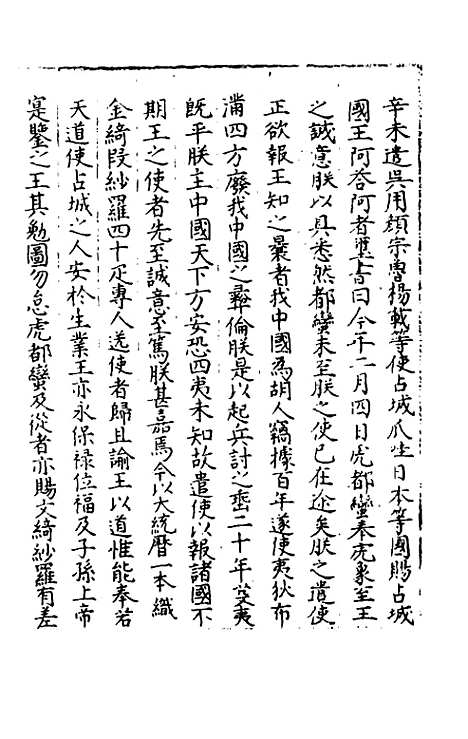 辛未遣吳用顔宗魯揚載等使占城爪哇日本等國賜占城
國王阿答阿者璽書曰今年二月四日虎都蠻奉虎象至王
之誠意朕以具悉然都蠻未至朕之使已在途矣朕之遣使
正欲報王知之曩者我中國為胡人竊據百年遂使夷狄布
滿四方廢我中國之彝倫朕是以起兵討之垂二十年芟夷
旣平朕主中國天下方安恐四夷未知故遣使以報諸國不
期王之使者先至誠意至篤朕甚嘉焉今以大統曆一本織
金綺段紗羅四十疋專人送使者歸且諭王以道惟能奉若
天道使占城之人安於生業王亦永保祿位福及子孫上帝
寔鑒之王其勉圖勿怠虎都蠻及從者亦賜文綺紗羅有差